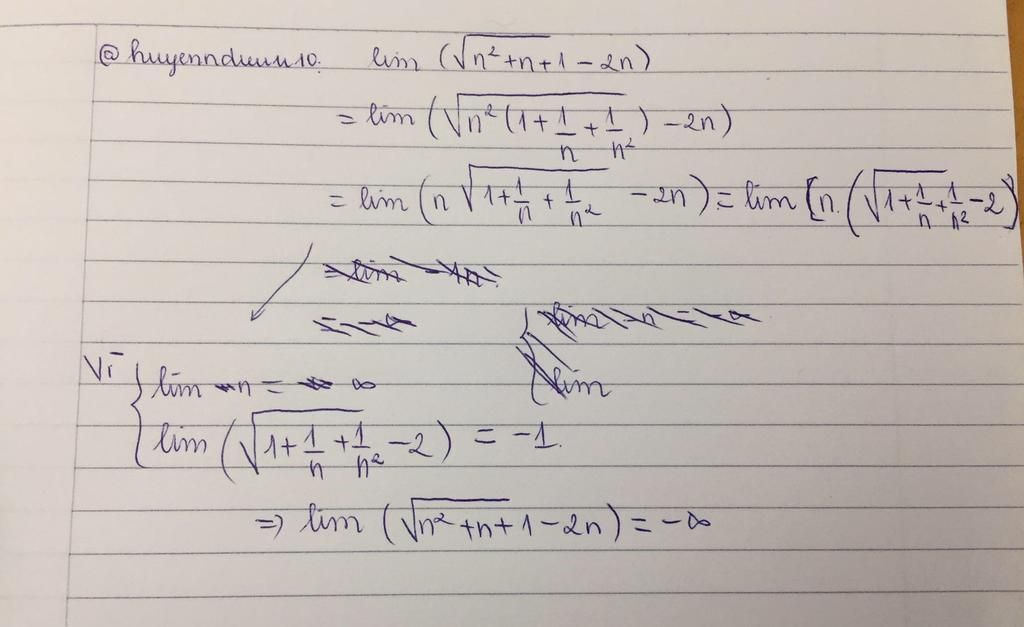 @huyenndieuu10. lim (√n²+n+1 − 2n)
= lim (√n²(1+1/n+1/n²) − 2n)
= lim (n√1+1/n+1/n² − 2n) = lim [n.(√1+1/n+1/n² − 2)
Vì { lim n = ∞
lim
lim (√1+1/n+1/n² − 2) = −1.
=> lim (√n²+n+1 − 2n) = −∞